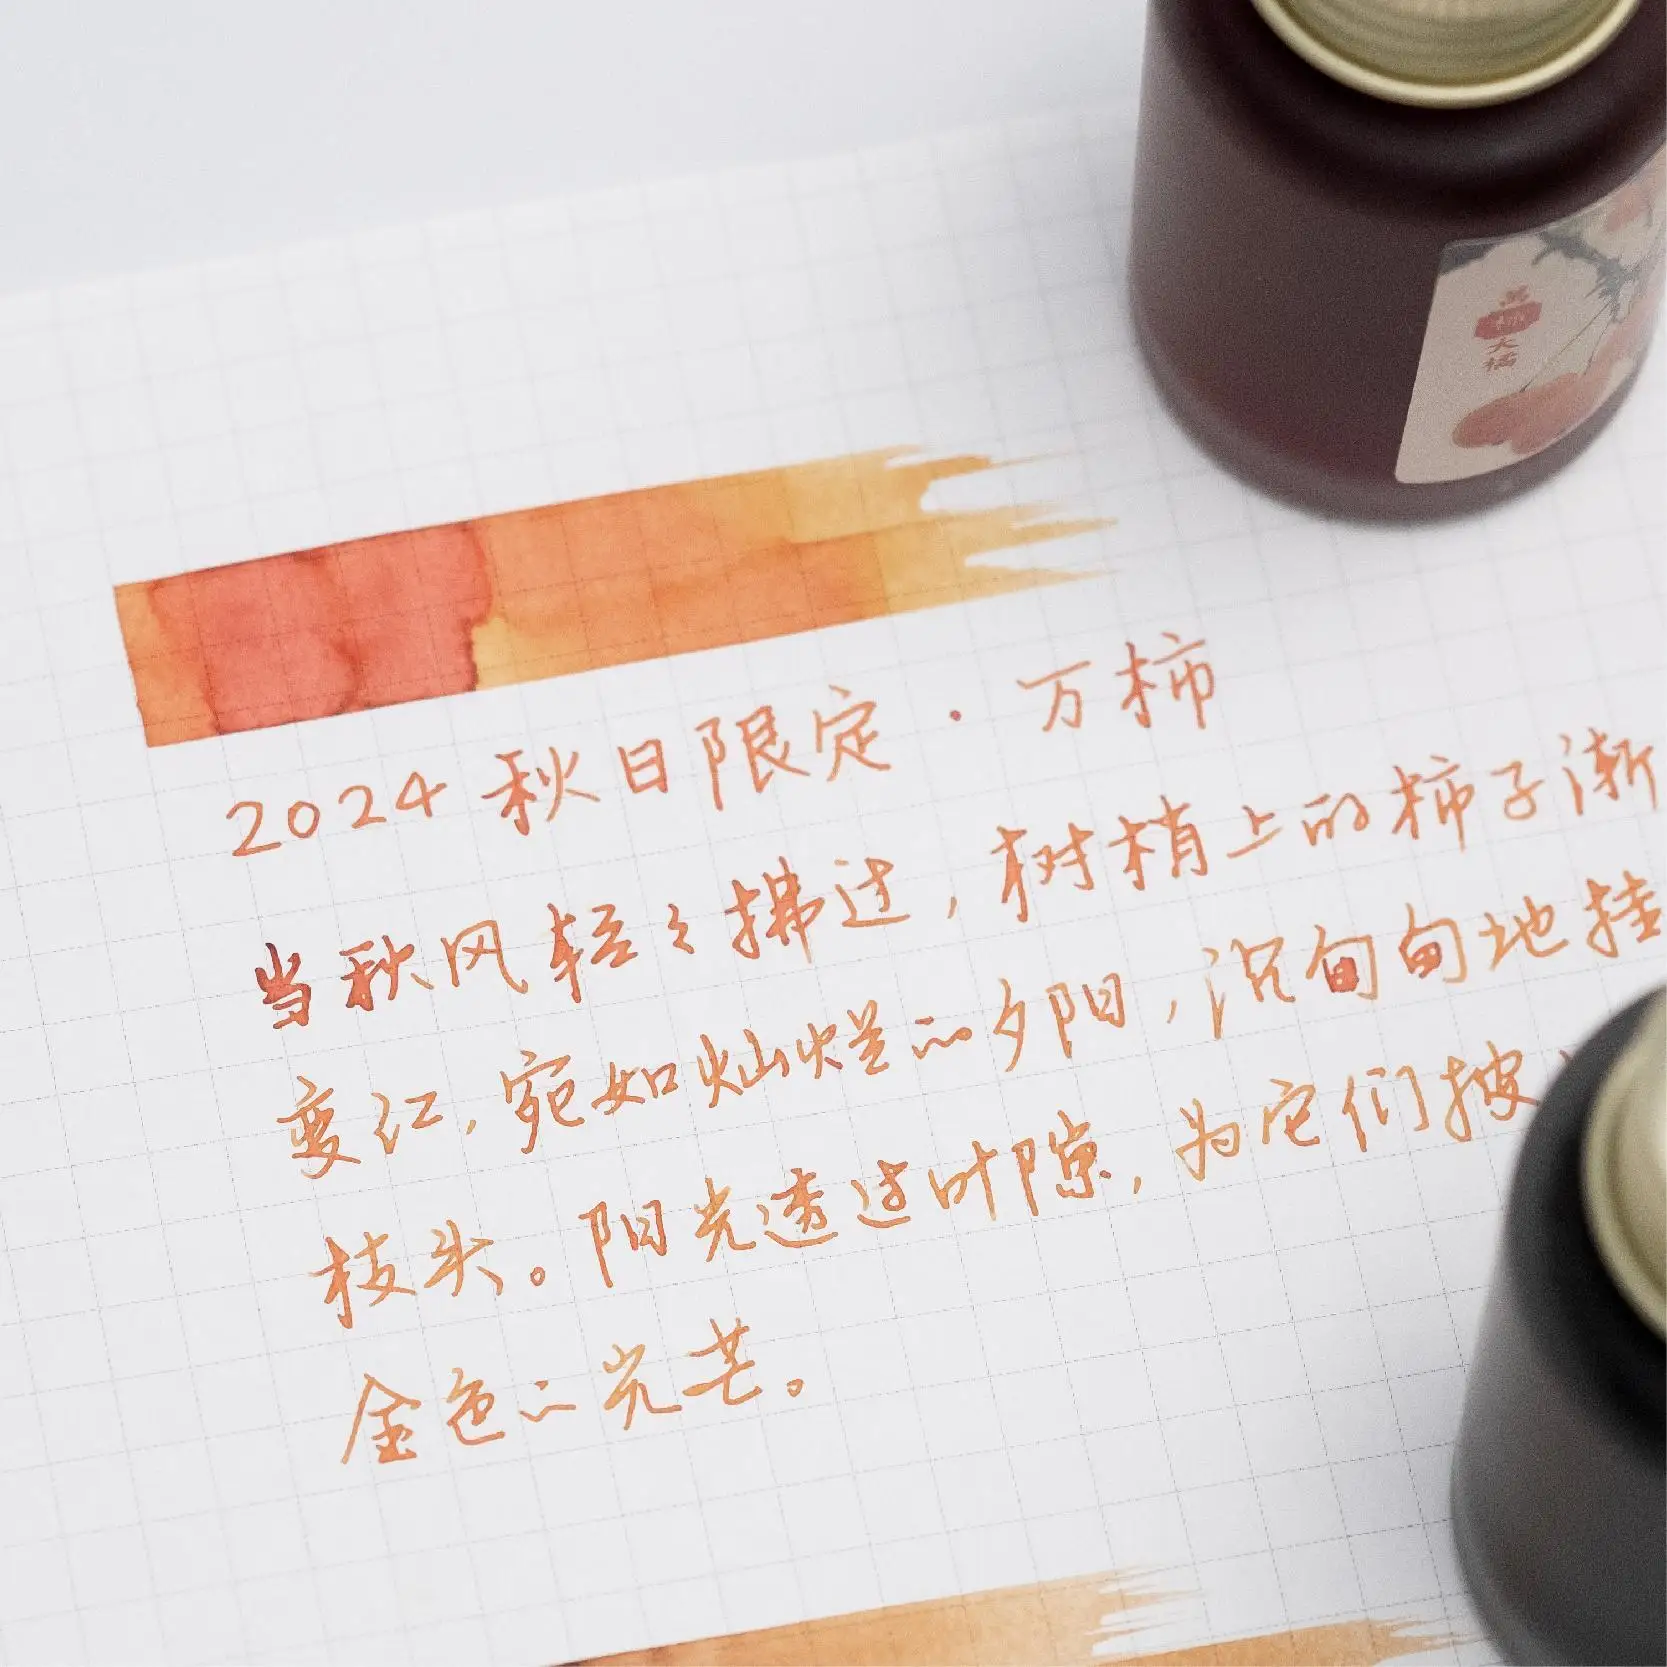 2024秋日限定·万柿
当秋风轻々拂过，树梢上的柿子渐
变红，宛如灿烂的夕阳，沉甸甸地挂
枝头。阳光透过叶隙，为它们披
金色的光芒。